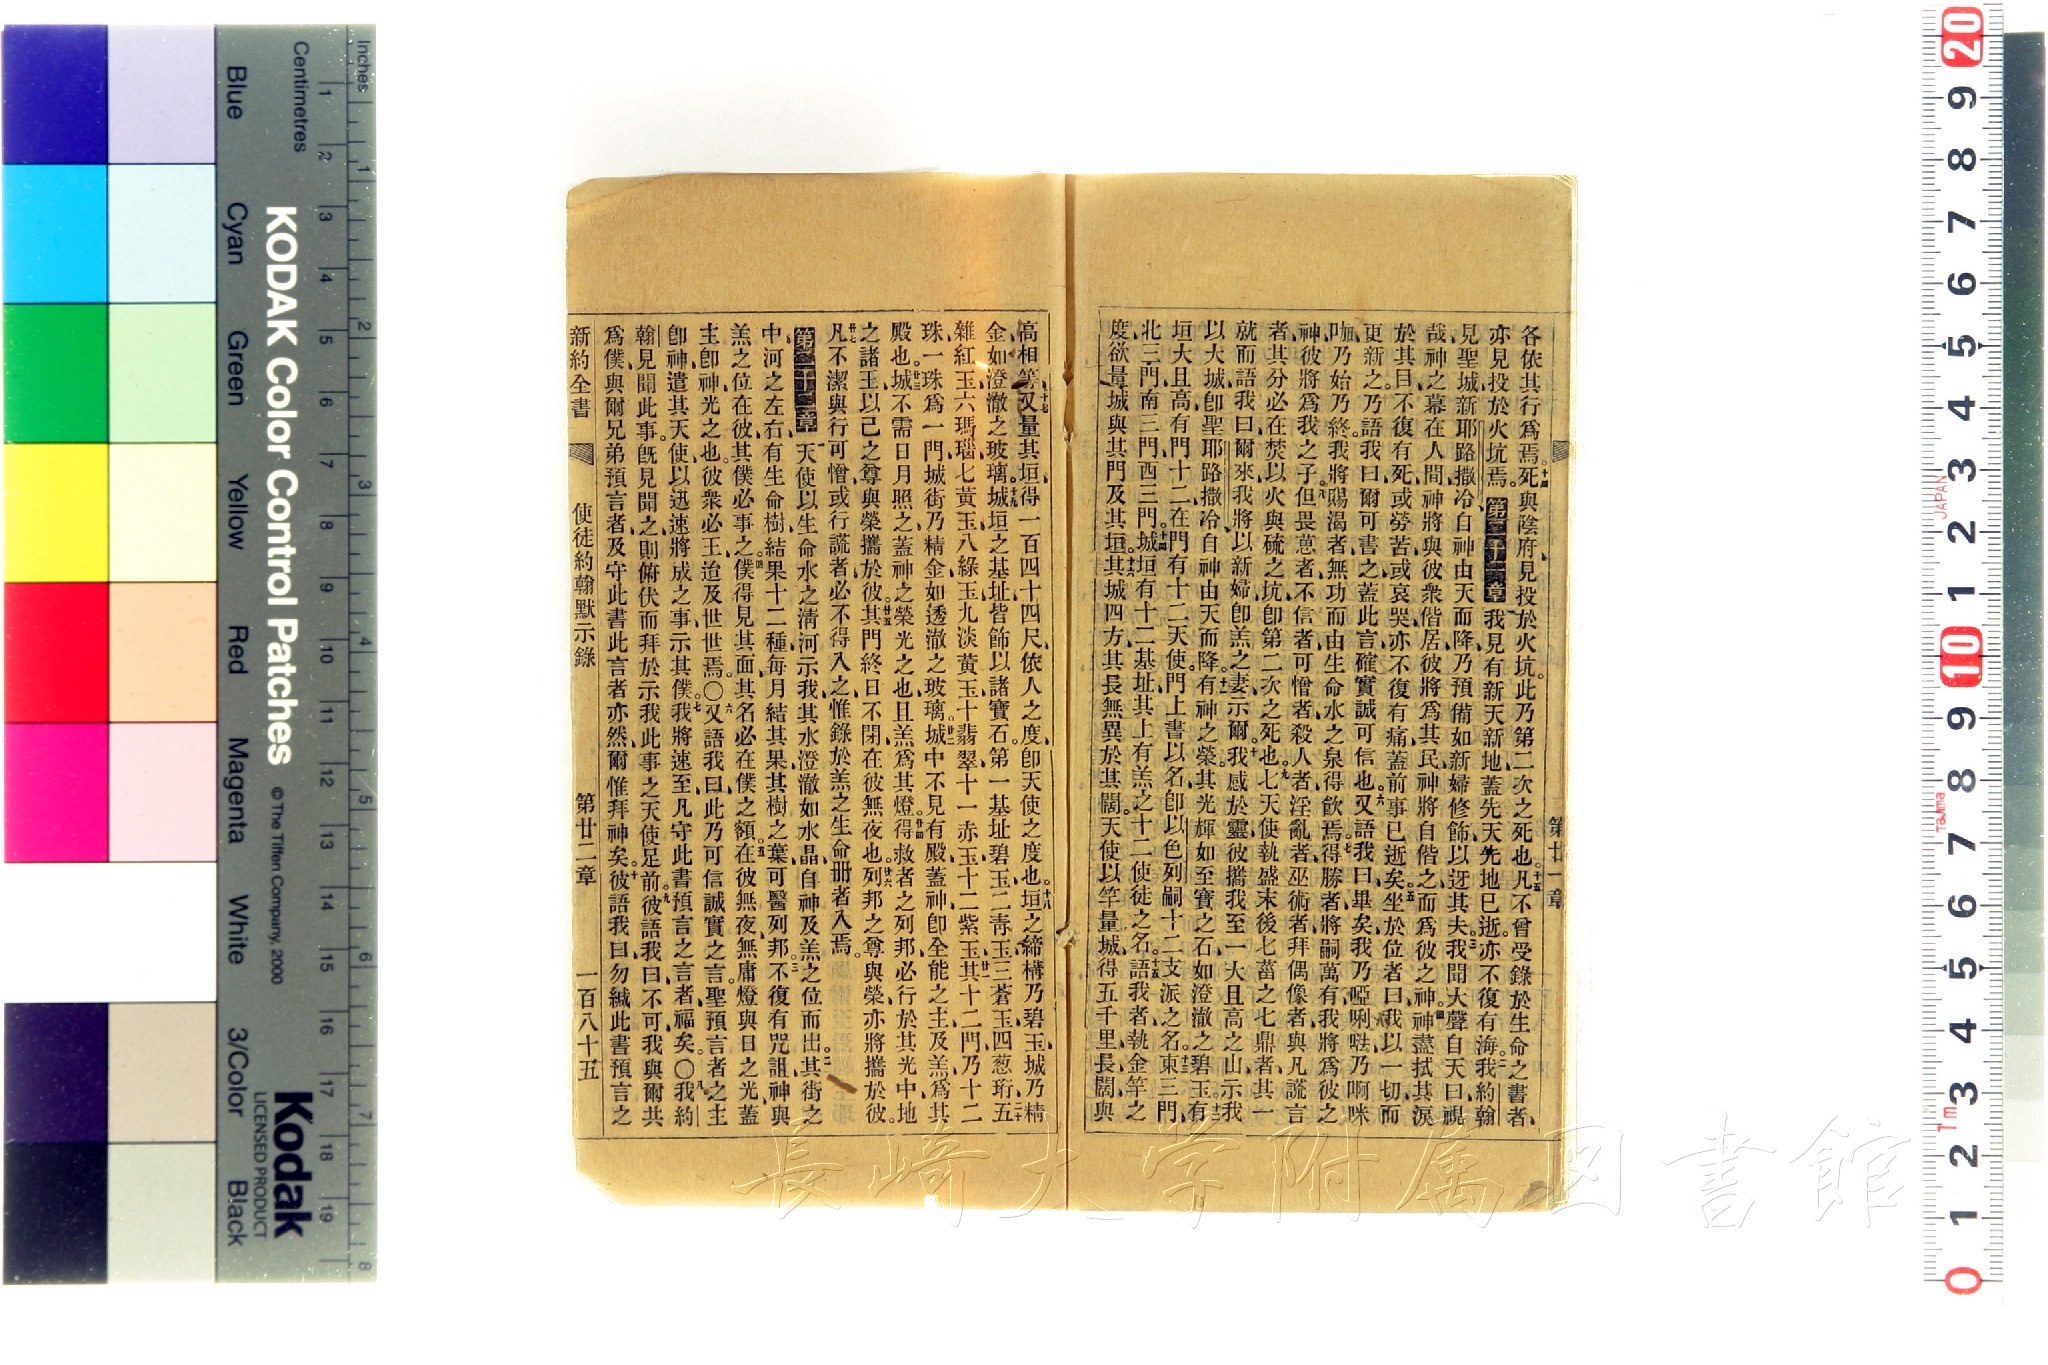 各依其行爲焉死與陰府見投於火坑此乃第二次之死也凡不曾受錄於生命之書者
亦見投於火坑焉第二十一章我見有新天新地蓋先天先地已逝亦不復有海我約翰
見聖城新耶路撒冷自神由天而降乃預備如新婦修飾以迓其夫我聞大聲自天曰視
哉神之幕在人間神將與彼衆偕居彼將爲其民神將自偕之而爲彼之神神盡拭其淚
於其目不復有死或勞苦或哀哭亦不復有痛蓋前事已逝矣坐於位者曰我以一切而
更新之乃語我曰爾可書之蓋此言確實誠可信也又語我曰畢矣我乃啞唎㗐乃啊咪
㗎乃始乃終我將賜渴者無功而由生命水之泉得飲焉得勝者將嗣萬有我將爲彼之
神彼將爲我之子但畏葸者不信者可憎者殺人者淫亂者巫術者拜偶像者與凡謊言
者其分必在焚以火與硫之坑卽第二次之死也七天使執盛末後七菑之七鼎者其一
就而語我曰爾來我將以新婦卽羔之妻示爾我感於靈彼攜我至一大且高之山示我
以大城卽聖耶路撒冷自神由天而降有神之榮其光輝如至寶之石如澄澈之碧玉有
垣大且高有門十二在門有十二天使門上書以名卽以色列嗣十二支派之名東三門
北三門南三門西三門城垣有十二基址其上有羔之十二使徒之名語我者執金竿之
度欲量城與其門及其垣其城四方其長無異於其闊天使以竿量城得五千里長闊與
第廿一章
高相等又量其垣得一百四十四尺依人之度卽天使之度也垣之締構乃碧玉城乃精
金如澄澈之玻璃城垣之基址皆飾以諸寶石第一基址碧玉二靑玉三蒼玉四葱珩五
雜紅玉六瑪瑙七黃玉八綠玉九淡黃玉十翡翠十一赤玉十二紫玉其十二門乃十二
珠一珠爲一門城街乃精金如透澈之玻璃城中不見有殿蓋神卽全能之主及羔爲其
殿也城不需日月照之蓋神之榮光之也且羔爲其燈得救者之列邦必行於其光中地
之諸王以己之尊與榮攜於彼其門終日不閉在彼無夜也列邦之尊與榮亦將攜於彼
凡不潔與行可憎或行謊者必不得入之惟錄於羔之生命册者入焉
第二十二章天使以生命水之淸河示我其水澄澈如水晶自神及羔之位而出其街之
中河之左右有生命樹結果十二種每月結其果其樹之葉可醫列邦不復有咒詛神與
羔之位在彼其僕必事之僕得見其面其名必在僕之額在彼無夜無庸燈與日之光蓋
主卽神光之也彼衆必王迨及世世焉○又語我曰此乃可信誠實之言聖預言者之主
卽神遣其天使以迅速將成之事示其僕我將速至凡守此書預言之言者福矣○我約
翰見聞此事旣見聞之則俯伏而拜於示我此事之天使足前彼語我曰不可我與爾共
爲僕與爾兄弟預言者及守此書此言者亦然爾惟拜神矣彼語我曰勿緘此書預言之
新約全書 使徒約翰默示錄 第廿二章 一百八十五
長崎大学附属図書館
Inches
Centimetres
KODAK Color Control Patches
© The Tiffen Company, 2000
Kodak
LICENSED PRODUCT
Blue Cyan Green Yellow Red Magenta White 3/Color Black
JAPAN
Tajima
1m